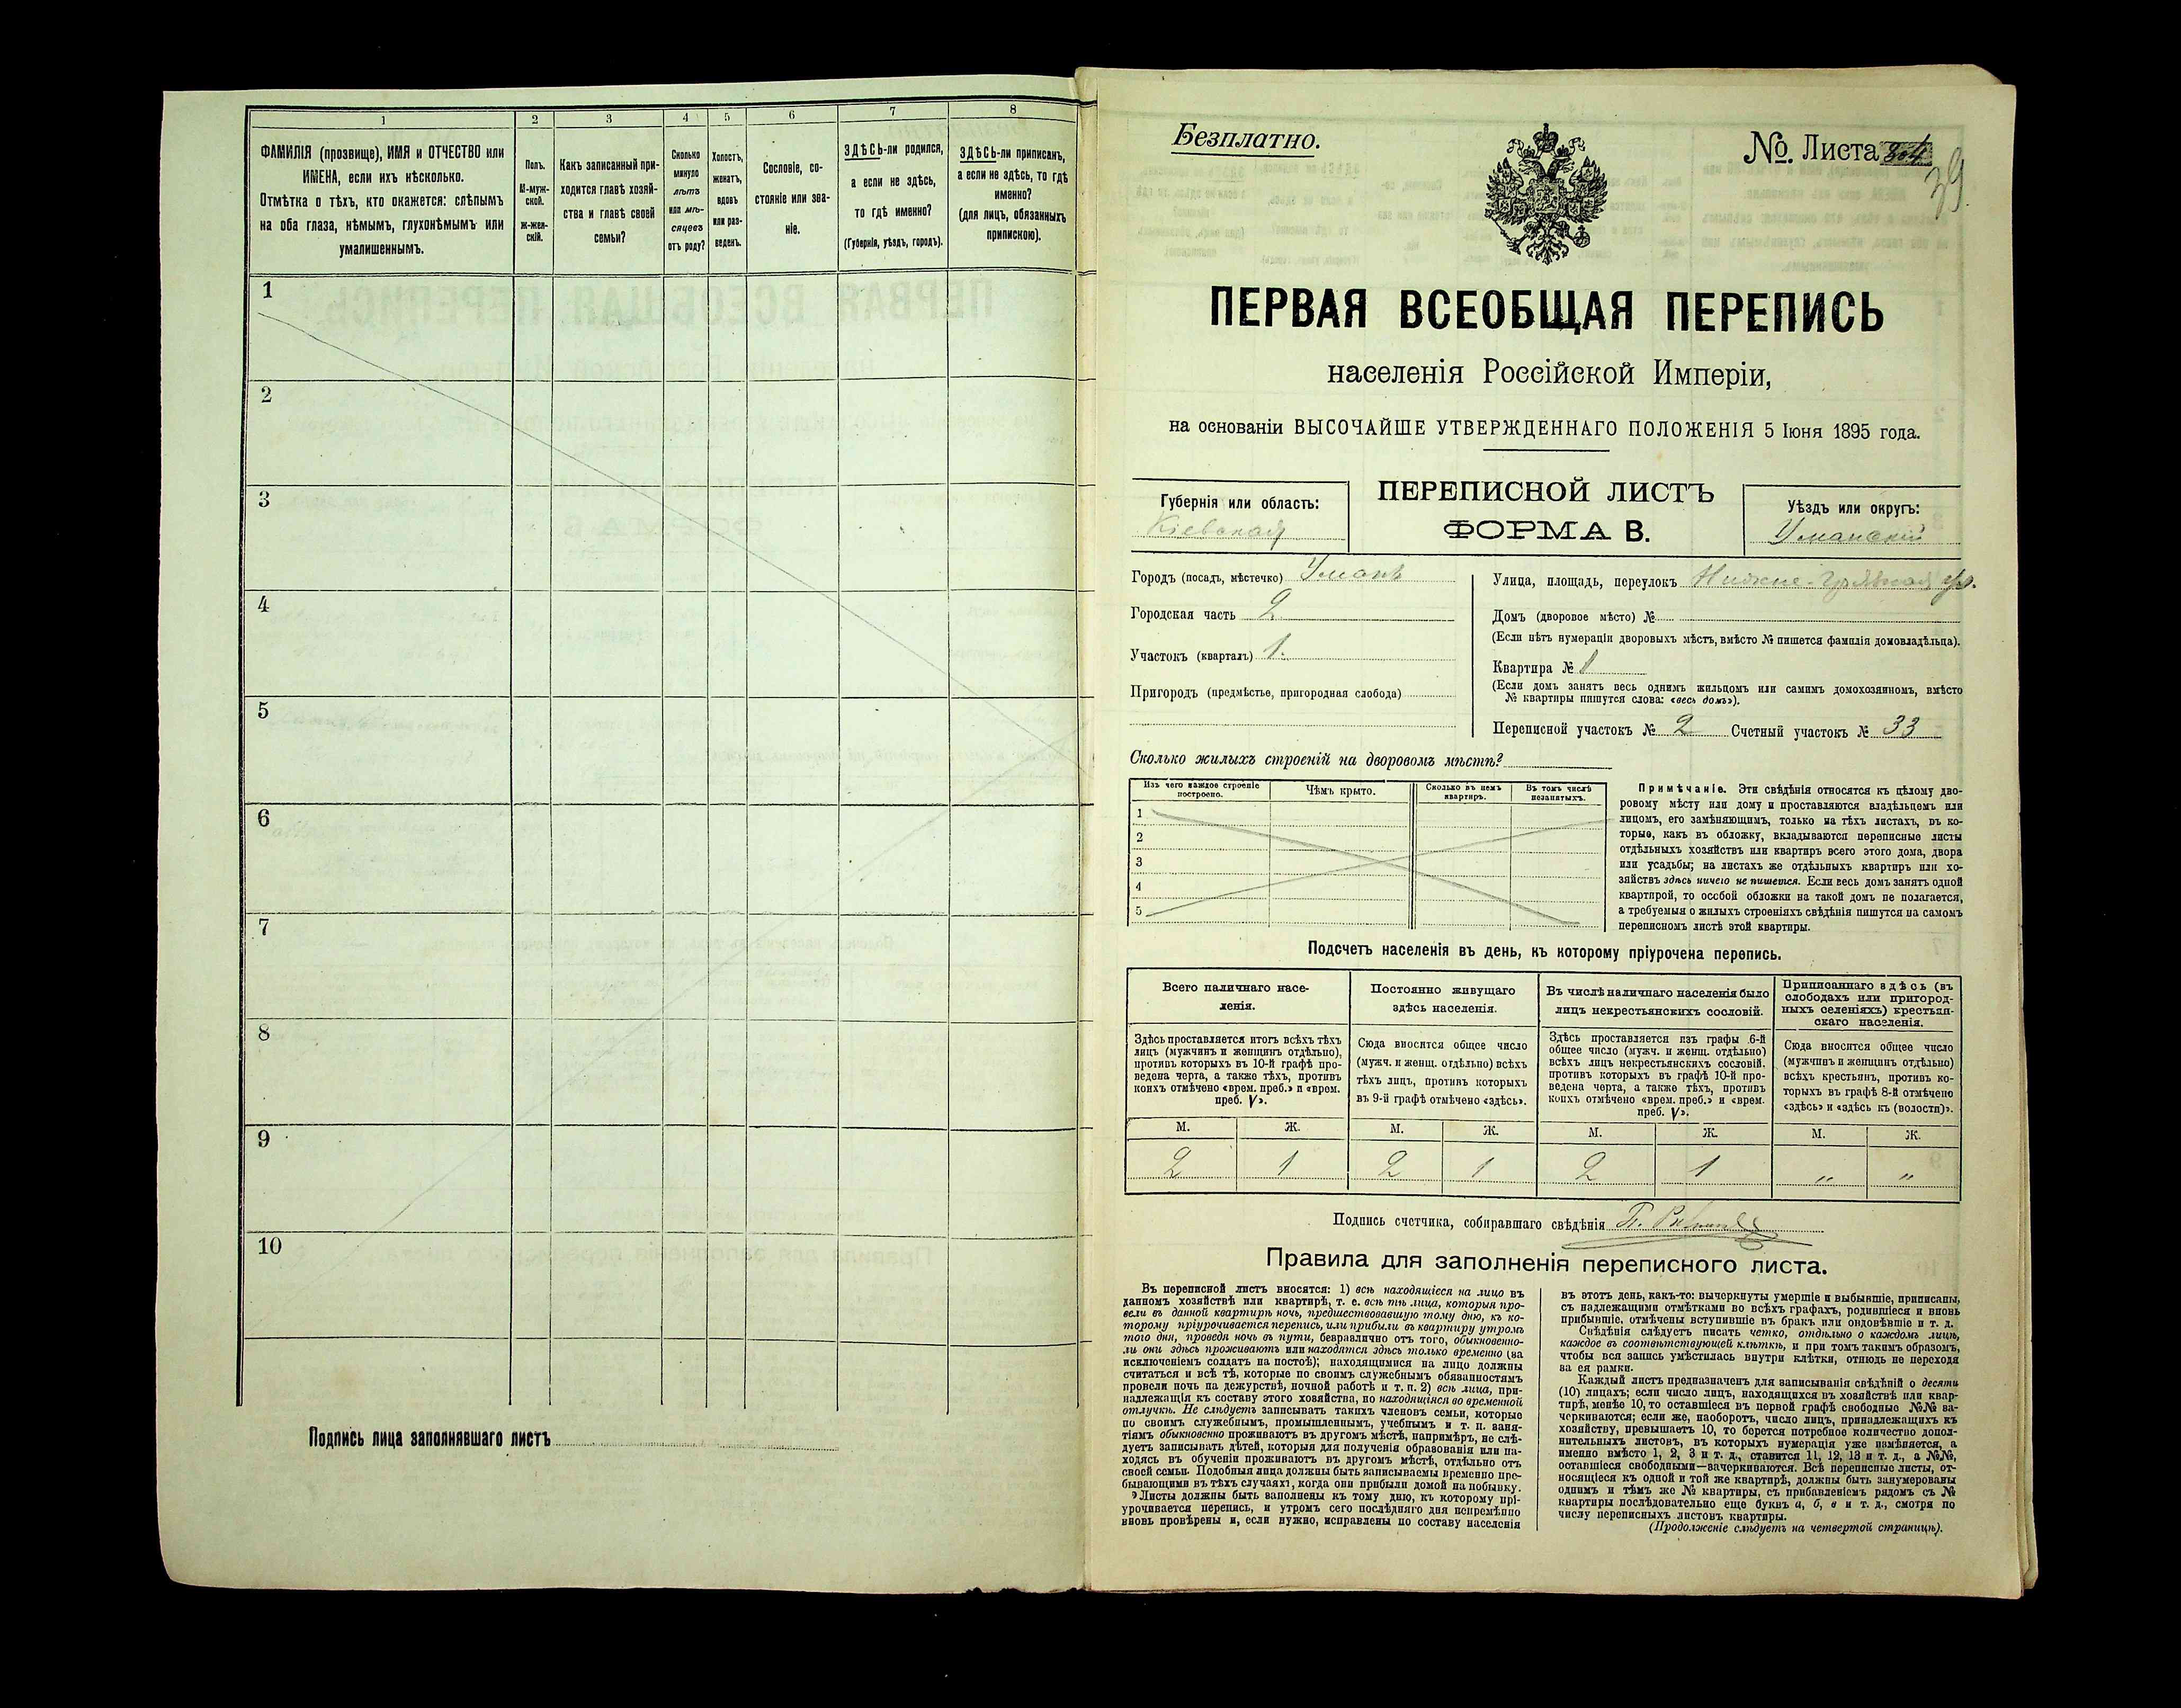 1
2
3
4
5
6
7
8
ФАМИЛІЯ (прозвище), ИМЯ и ОТЧЕСТВО или
ИМЕНА, если ихъ нѣсколько.
Отмѣтка о тѣхъ, кто окажется: слѣпымъ
на оба глаза, нѣмымъ, глухонѣмымъ или
умалишеннымъ.
Полъ.
М-муж-
ской.
Ж-жен-
скій.
Какъ записанный при-
ходится главѣ хозяй-
ства и главѣ своей
семьи?
Сколько
минуло
лѣтъ
или мѣ-
сяцевъ
отъ роду?
Холостъ,
женатъ,
вдовъ
или раз-
веденъ.
Сословіе, со-
стояніе или зва-
ніе.
ЗДѢСЬ-ли родился,
а если не здѣсь,
то гдѣ именно?
(Губернія, уѣздъ, городъ).
ЗДѢСЬ-ли приписанъ,
а если не здѣсь, то гдѣ
именно?
(для лицъ, обязанныхъ
припискою).
1
2
3
4
5
6
7
8
9
10
Подпись лица заполнявшаго листъ
Безплатно.
№. Листа
39
ПЕРВАЯ ВСЕОБЩАЯ ПЕРЕПИСЬ
населенія Россійской Имперіи,
на основаніи ВЫСОЧАЙШЕ УТВЕРЖДЕННАГО ПОЛОЖЕНІЯ 5 Іюня 1895 года.
Губернія или область:
Кіевская
ПЕРЕПИСНОЙ ЛИСТЪ
ФОРМА В.
Уѣздъ или округъ:
Уманскій
Городъ (посадъ, мѣстечко) Умань
Городская часть 2
Участокъ (кварталъ) 1.
Пригородъ (предмѣстье, пригородная слобода)
Улица, площадь, переулокъ Нижне- ул.
Домъ (дворовое мѣсто) №
(Если нѣтъ нумераціи дворовыхъ мѣстъ, вмѣсто № пишется фамилія домовладѣльца).
Квартира № 1
(Если домъ занятъ весь однимъ жильцомъ или самимъ домохозяиномъ, вмѣсто
№ квартиры пишутся слова: «весь домъ»).
Переписной участокъ № 2 Счетный участокъ № 33
Сколько жилыхъ строеній на дворовомъ мѣстѣ?
Изъ чего каждое строеніе
построено.
Чѣмъ крыто.
Сколько въ немъ
квартиръ.
Въ томъ числѣ
незанятыхъ.
1
2
3
4
5
Примѣчаніе. Эти свѣдѣнія относятся къ цѣлому дво-
ровому мѣсту или дому и проставляются владѣльцемъ или
лицомъ, его замѣняющимъ, только на тѣхъ листахъ, въ ко-
торые, какъ въ обложку, вкладываются переписные листы
отдѣльныхъ хозяйствъ или квартиръ всего этого дома, двора
или усадьбы; на листахъ же отдѣльныхъ квартиръ или хо-
зяйствъ здѣсь ничего не пишется. Если весь домъ занятъ одной
квартирой, то особой обложки на такой домъ не полагается,
а требуемыя о жилыхъ строеніяхъ свѣдѣнія пишутся на самомъ
переписномъ листѣ этой квартиры.
Подсчетъ населенія въ день, къ которому пріурочена перепись.
Всего наличнаго насе-
ленія.
Здѣсь проставляется итогъ всѣхъ тѣхъ
лицъ (мужчинъ и женщинъ отдѣльно),
противъ которыхъ въ 10-й графѣ про-
ведена черта, а также тѣхъ, противъ
коихъ отмѣчено «врем. преб.» и «врем.
преб. V».
Постоянно живущаго
здѣсь населенія.
Сюда вносится общее число
(мужч. и женщ. отдѣльно) всѣхъ
тѣхъ лицъ, противъ которыхъ
въ 9-й графѣ отмѣчено «здѣсь».
Въ числѣ наличнаго населенія было
лицъ некрестьянскихъ сословій.
Здѣсь проставляется изъ графы 6-й
общее число (мужч. и женщ. отдѣльно)
всѣхъ лицъ некрестьянскихъ сословій,
противъ которыхъ въ графѣ 10-й про-
ведена черта, а также тѣхъ, противъ
коихъ отмѣчено «врем. преб.» и «врем.
преб. V».
Приписаннаго здѣсь (въ
слободахъ или пригород-
ныхъ селеніяхъ) крестьян-
скаго населенія.
Сюда вносится общее число
(мужчинъ и женщинъ отдѣльно)
всѣхъ крестьянъ, противъ ко-
торыхъ въ графѣ 8-й отмѣчено
«здѣсь» и «здѣсь къ (волости)».
М. Ж. М. Ж. М. Ж. М. Ж.
2 1 2 1 2 1 " "
Подпись счетчика, собиравшаго свѣдѣнія П.
Правила для заполненія переписного листа.
Въ переписной листъ вносятся: 1) всѣ находящіеся на лицо въ
данномъ хозяйствѣ или квартирѣ, т. е. всѣ тѣ лица, которыя про-
вели въ данной квартирѣ ночь, предшествовавшую тому дню, къ ко-
торому пріурочивается перепись, или прибыли въ квартиру утромъ
того дня, проведя ночь въ пути, безразлично отъ того, обыкновенно-
ли они здѣсь проживаютъ или находятся здѣсь только временно (за
исключеніемъ солдатъ на постоѣ); находящимися на лицо должны
считаться и всѣ тѣ, которые по своимъ служебнымъ обязанностямъ
провели ночь на дежурствѣ, ночной работѣ и т. п. 2) всѣ лица, при-
надлежащія къ составу этого хозяйства, но находящіяся во временной
отлучкѣ. Не слѣдуетъ записывать такихъ членовъ семьи, которые
по своимъ служебнымъ, промышленнымъ, учебнымъ и т. п. заня-
тіямъ обыкновенно проживаютъ въ другомъ мѣстѣ, напримѣръ, не слѣ-
дуетъ записывать дѣтей, которыя для полученія образованія или на-
ходясь въ обученіи проживаютъ въ другомъ мѣстѣ, отдѣльно отъ
своей семьи. Подобныя лица должны быть записываемы временно пре-
бывающими въ тѣхъ случаяхъ, когда они прибыли домой на побывку.
Листы должны быть заполнены къ тому дню, къ которому прі-
урочивается перепись, и утромъ сего послѣдняго дня непремѣнно
вновь провѣрены и, если нужно, исправлены по составу населенія
въ этотъ день, какъ-то: вычеркнуты умершіе и выбывшіе, приписаны,
съ надлежащими отмѣтками во всѣхъ графахъ, родившіеся и вновь
прибывшіе, отмѣчены вступившіе въ бракъ или овдовѣвшіе и т. д.
Свѣдѣнія слѣдуетъ писать четко, отдѣльно о каждомъ лицѣ,
каждое въ соотвѣтствующей клѣткѣ, и при томъ такимъ образомъ,
чтобы вся запись умѣстилась внутри клѣтки, отнюдь не переходя
за ея рамки.
Каждый листъ предназначенъ для записыванія свѣдѣній о десяти
(10) лицахъ; если число лицъ, находящихся въ хозяйствѣ или квар-
тирѣ, менѣе 10, то оставшіеся въ первой графѣ свободные №№ за-
черкиваются; если же, наоборотъ, число лицъ, принадлежащихъ къ
хозяйству, превышаетъ 10, то берется потребное количество допол-
нительныхъ листовъ, въ которыхъ нумерація уже измѣняется, а
именно вмѣсто 1, 2, 3 и т. д., ставится 11, 12, 13 и т. д., а №№,
оставшіеся свободными—зачеркиваются. Всѣ переписные листы, от-
носящіеся къ одной и той же квартирѣ, должны быть занумерованы
однимъ и тѣмъ же № квартиры, съ прибавленіемъ рядомъ съ №
квартиры послѣдовательно еще буквъ а, б, в и т. д., смотря по
числу переписныхъ листовъ квартиры.
(Продолженіе слѣдуетъ на четвертой страницѣ).